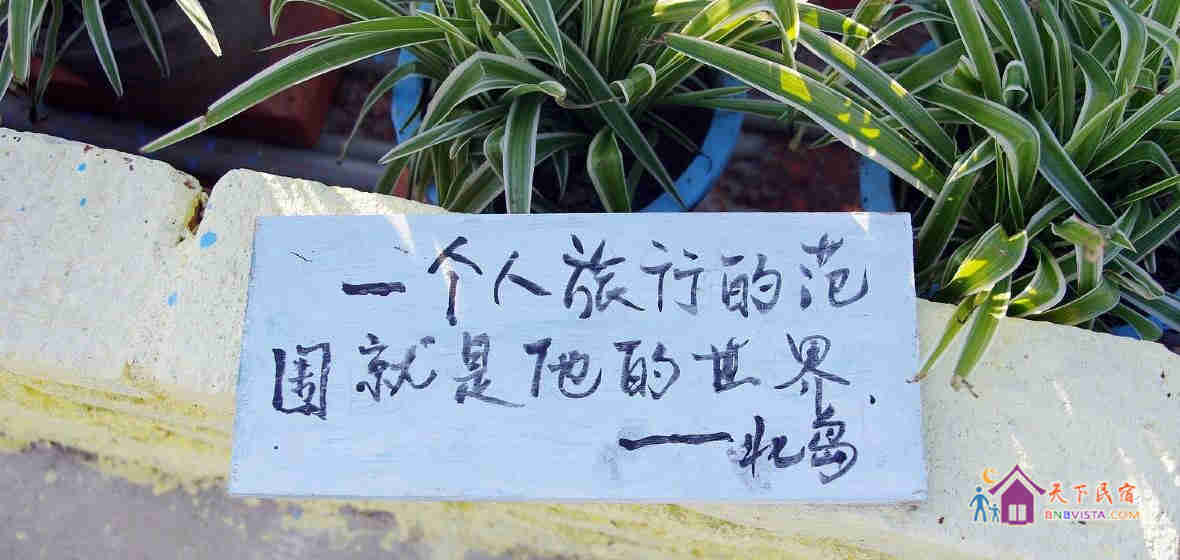 一个人旅行的范
围就是他的世界.
——北岛
天下民宿
BNBVISTA.COM